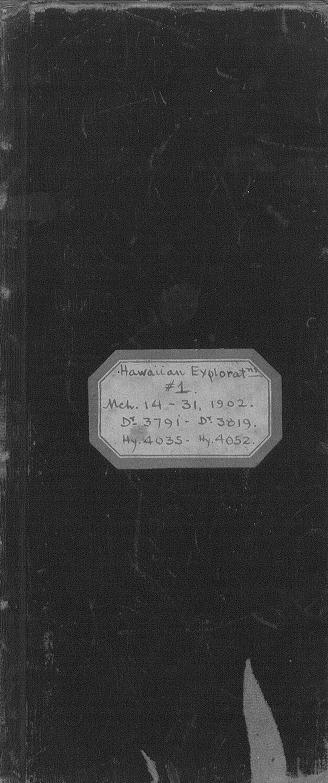 Hawaiian Explorat<sup>ns</sup>
#1
Mch. 14-31, 1902.
Dr. 3791- Dr. 3819.
Hy. 4035- Hy. 4052.